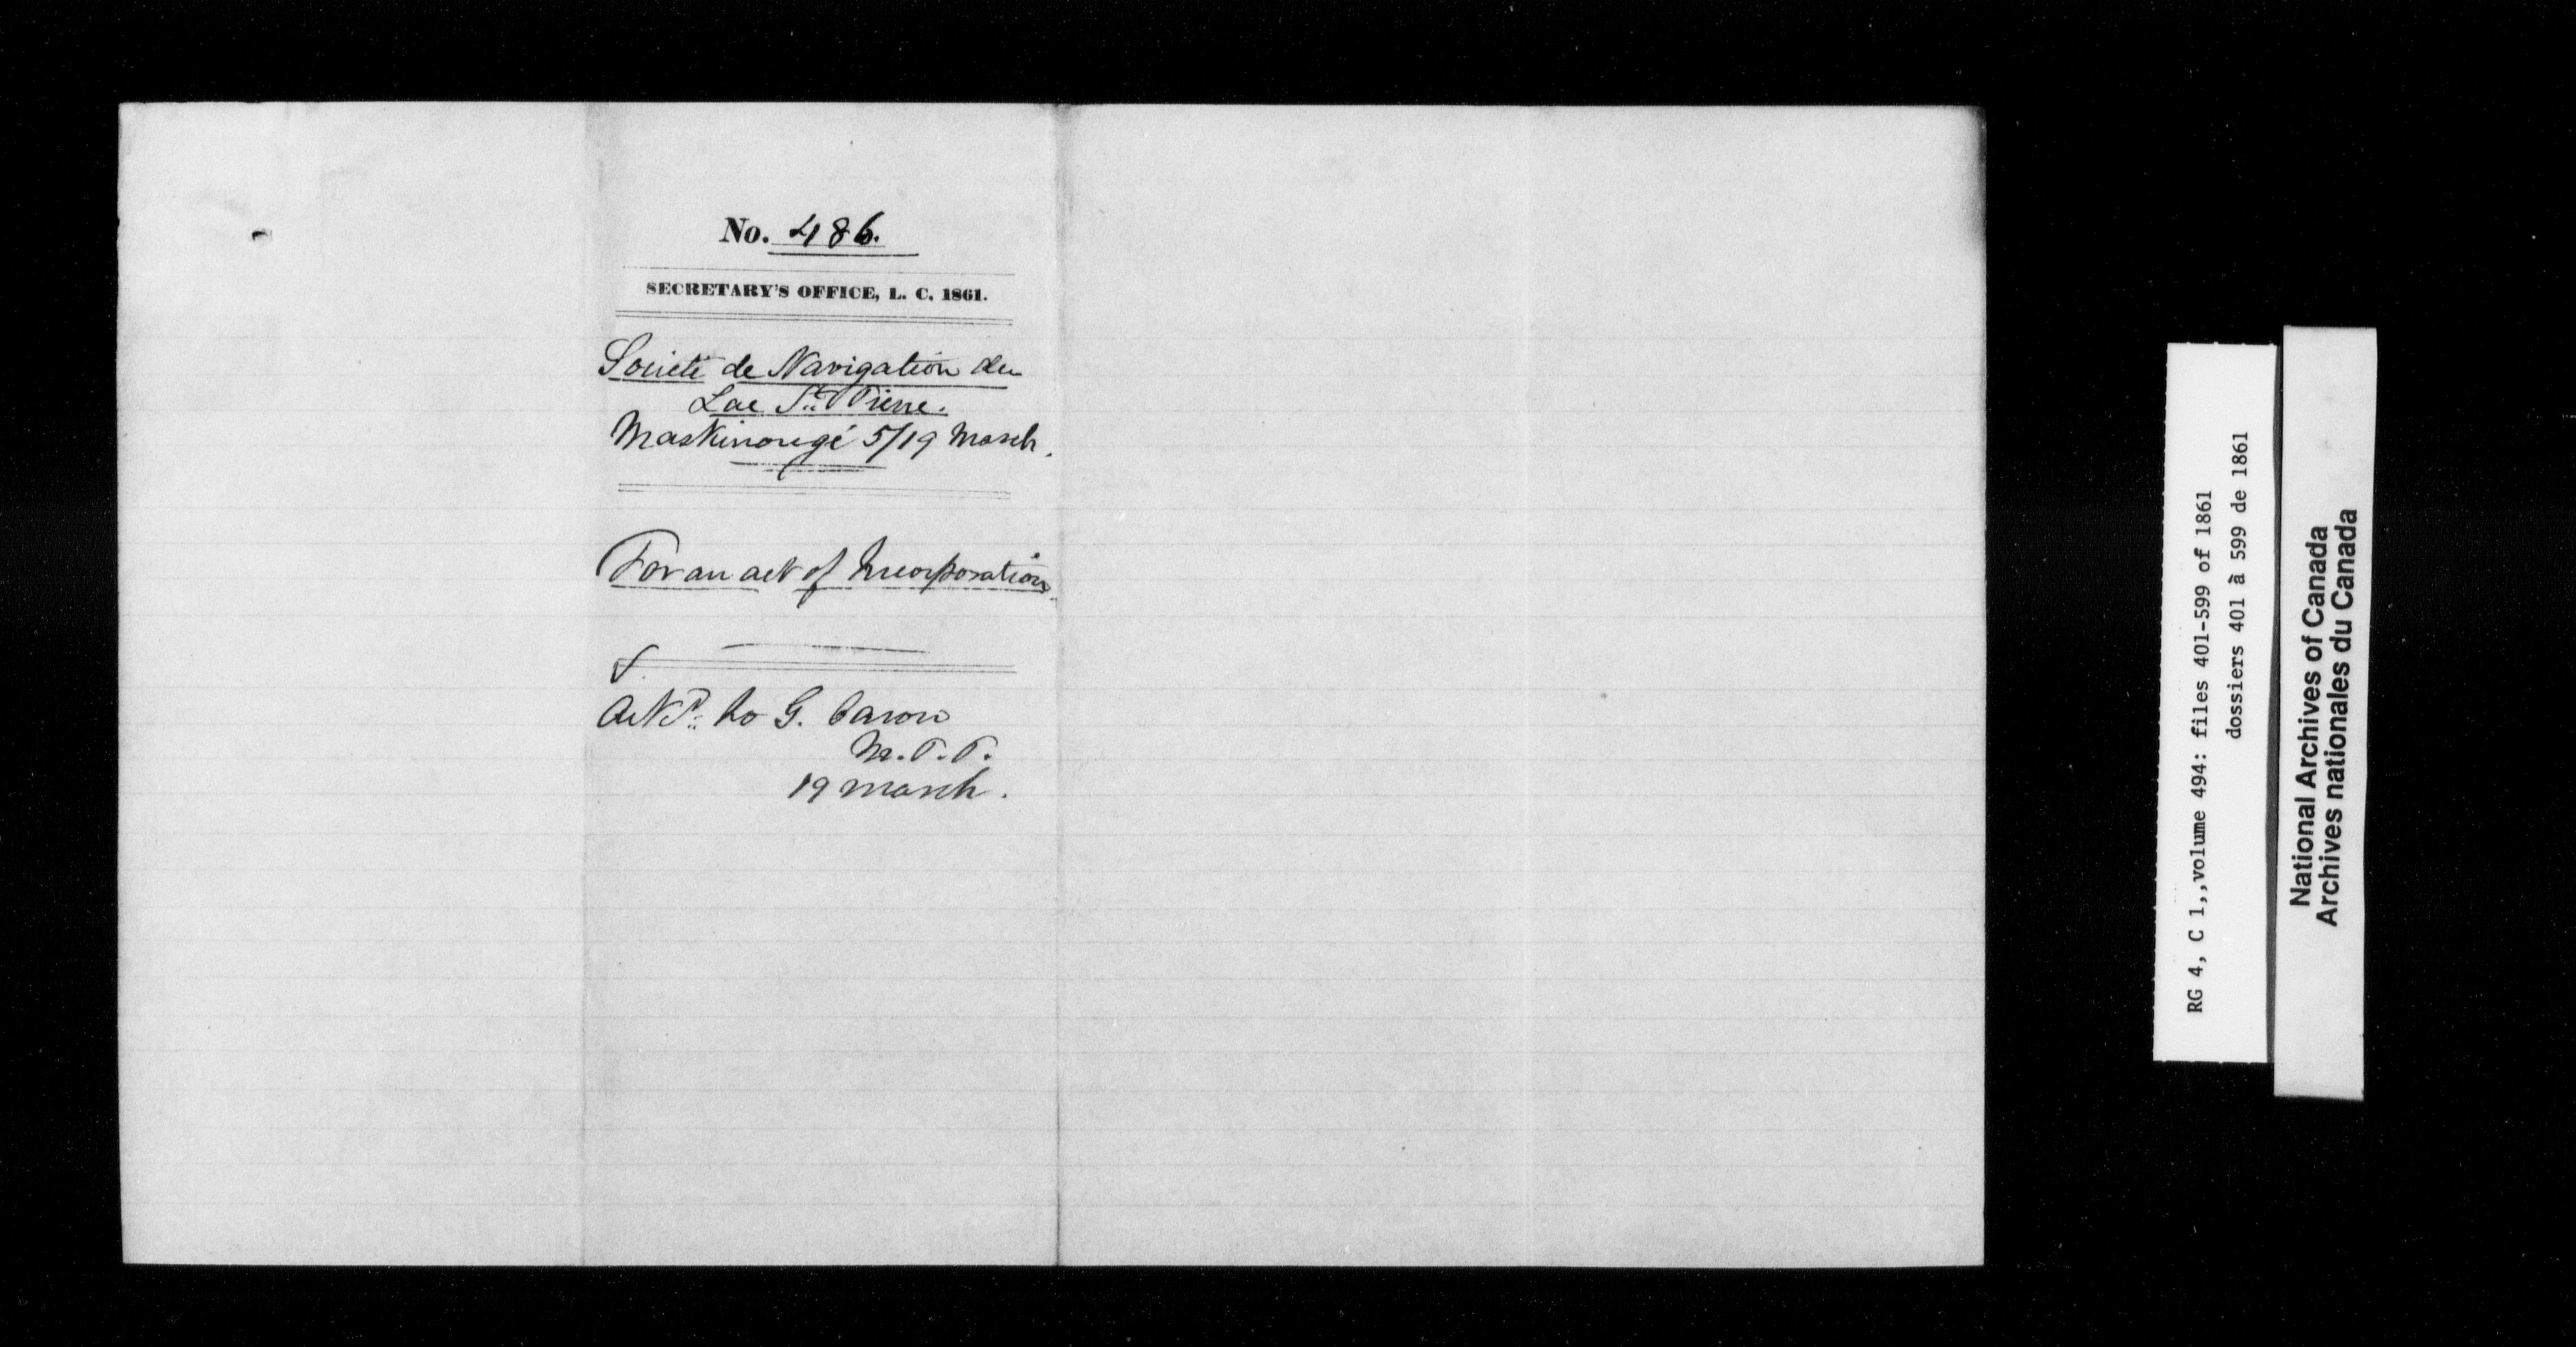 No. 486.
SECRETARY'S OFFICE, L. C. 1861.
Societé de Navigation du
Lac St. Pierre.
Maskinongé 5/19 March.
For an act of Incorporation
to G. Caron
M.P.P.
19 March.
RG 4, C 1,,volume 494: files 401-599 of 1861
dossiers 401 à 599 de 1861
National Archives of Canada
Archives nationales du Canada